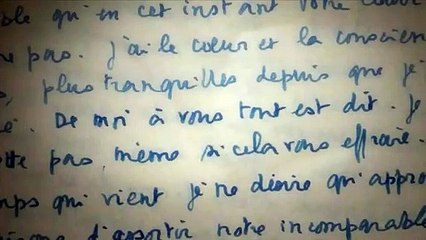 ble qu'en cet instant votre
ne pas. J'ai le cœur et la conscien
plus tranquilles depuis que je
é. De moi à vous tout est dit. Je
tte pas, même si cela vous effraie.
mps qui vient je ne désire qu'appro
d'assortir notre incomparable